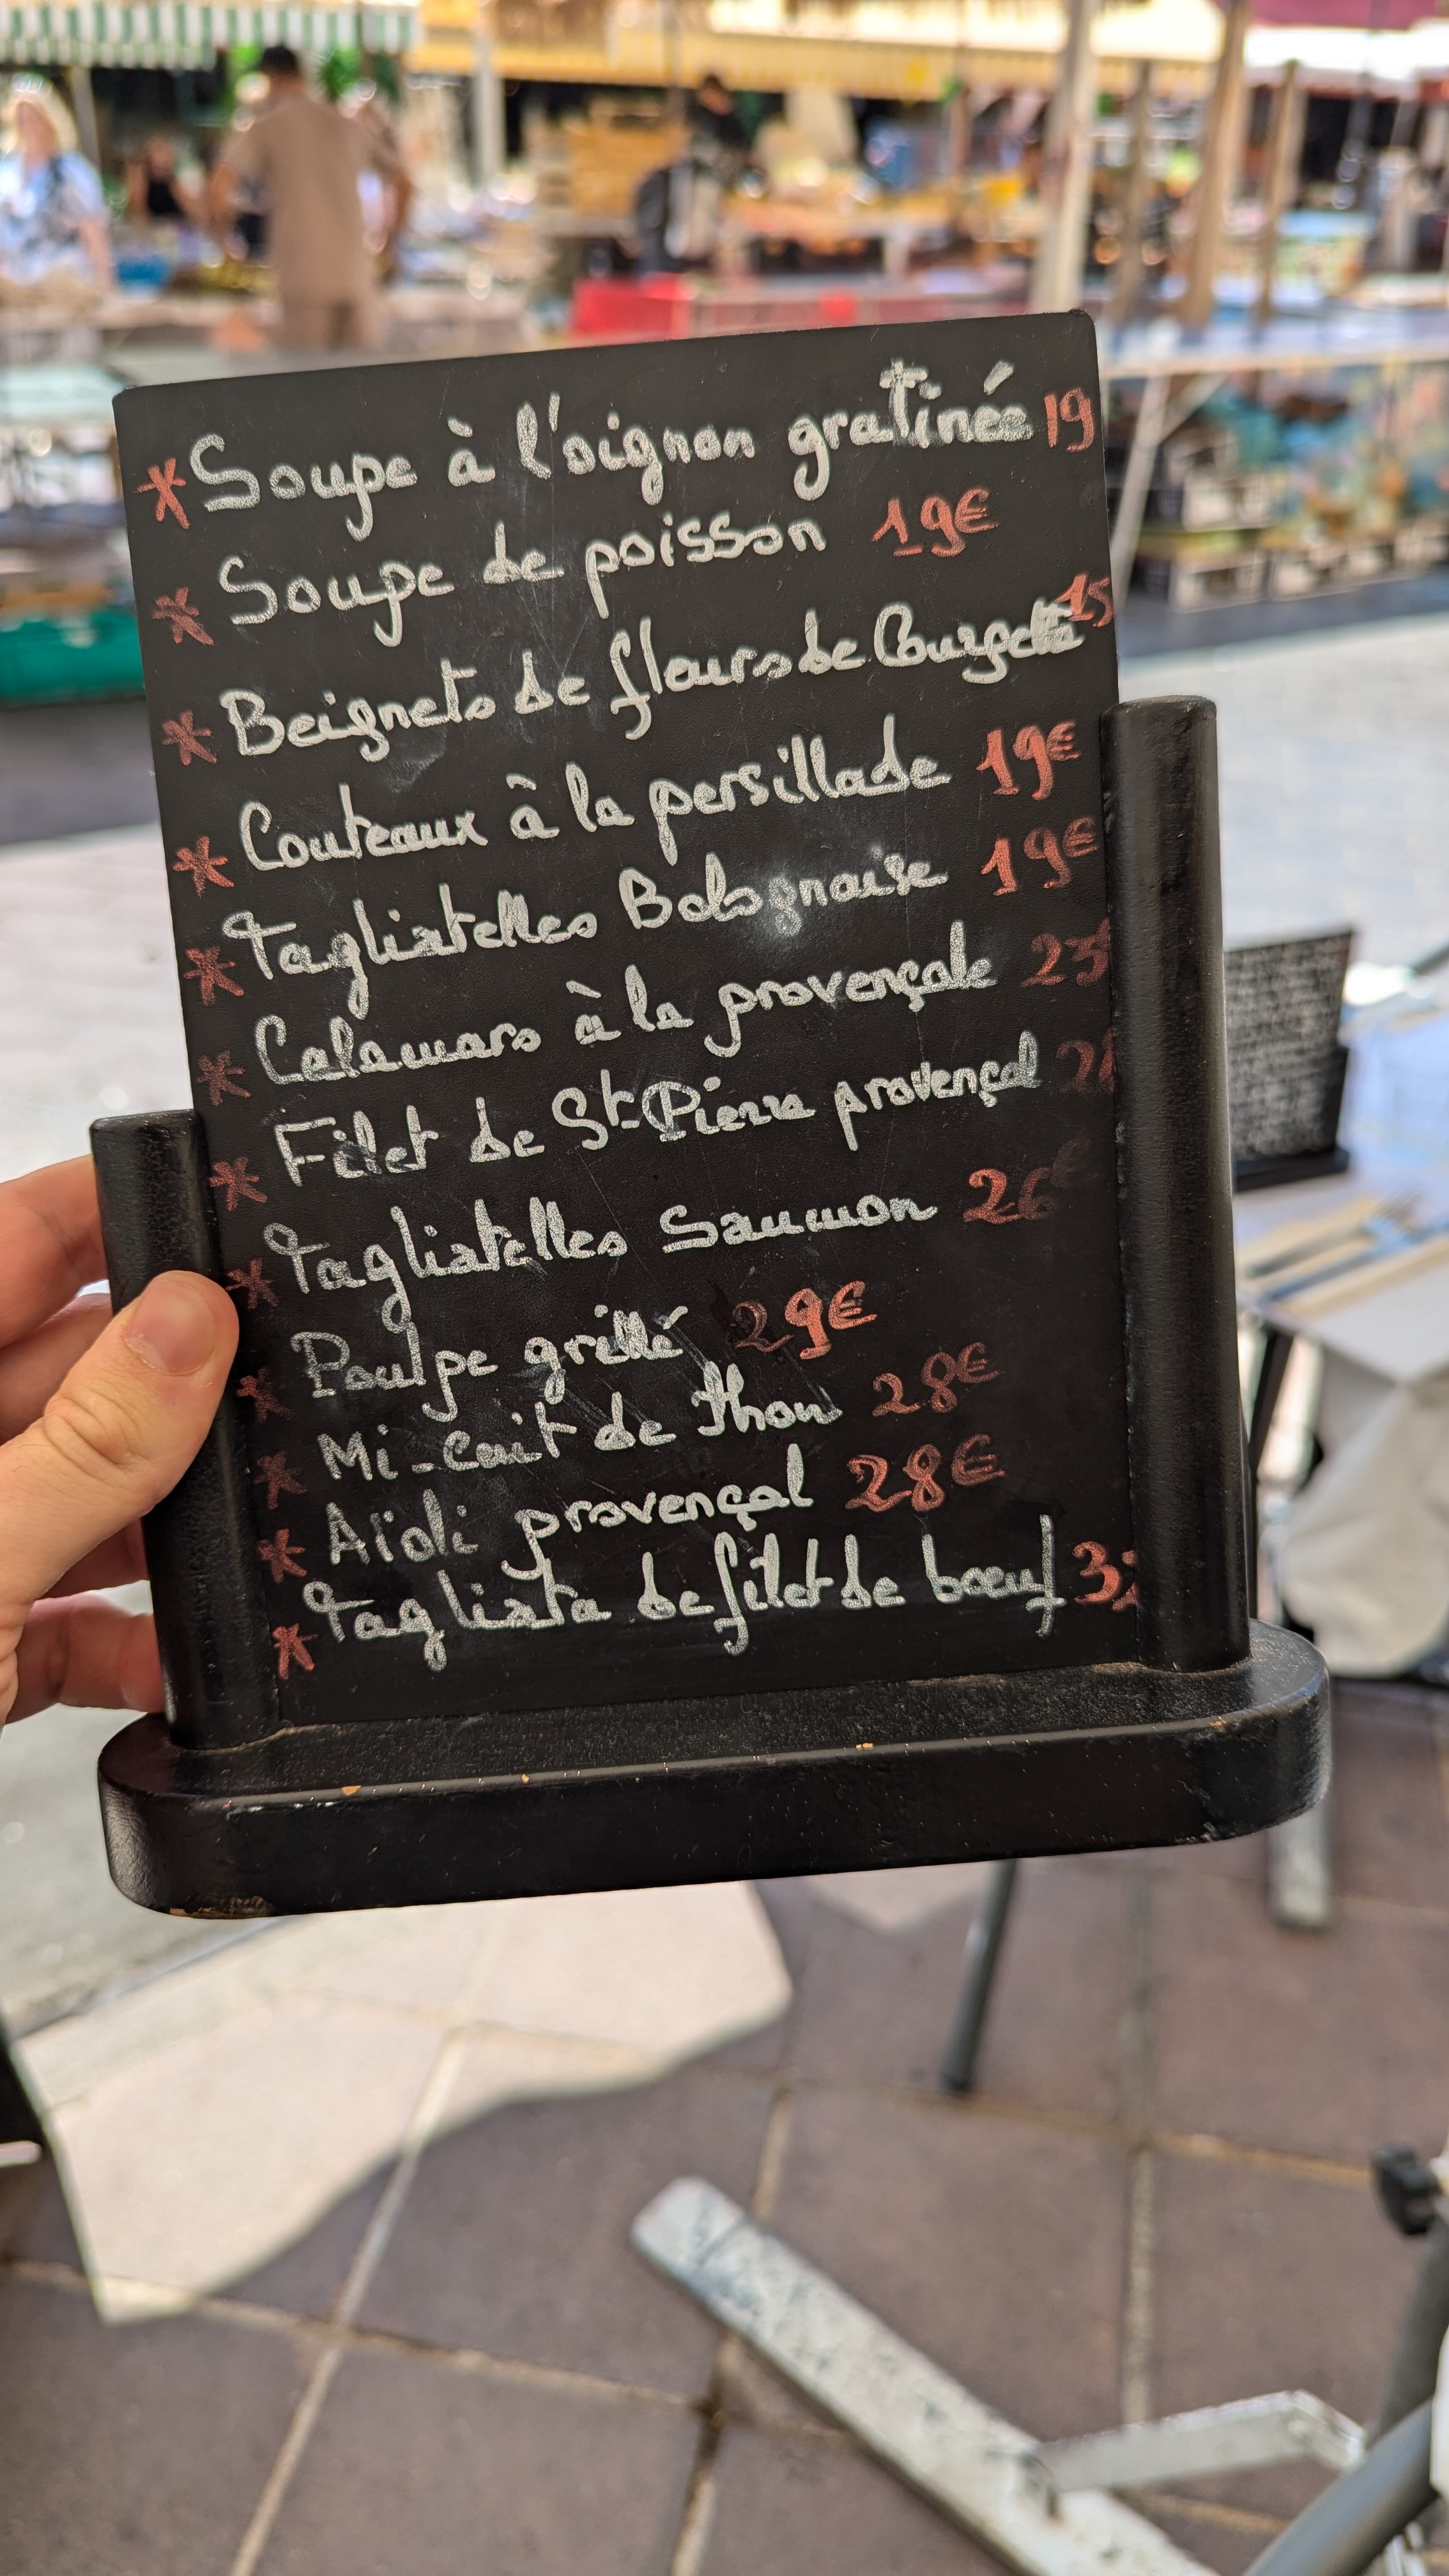 * Soupe à l'oignon gratinée 19
* Soupe de poisson 19€
* Beignets de fleurs de Courgette 15
* Couteaux à la persillade 19€
* Tagliatelles Bolognaise 19€
* Calamars à la provençale 25€
* Filet de St-Pierre provençal
* Tagliatelles Saumon 26€
* Poulpe grillé 29€
* Mi-cuit de thon 28€
* Aïoli provençal 28€
* Tagliata de filet de boeuf